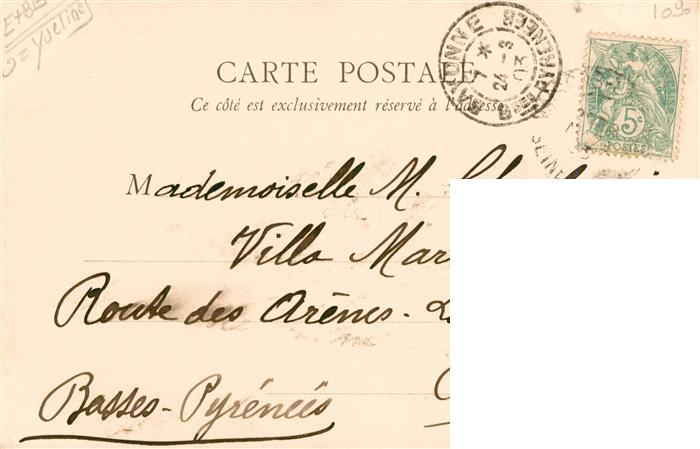 E+8b
Yveline
109.
CARTE POSTALE
Ce côté est exclusivement réservé à l'adresse
BAYONNE
7 *
24 -3
03
BSES PYRENEES
SEINE
5c
POSTES
Mademoiselle M.
Villa Mar
Route des Arènes -
Basses-Pyrénées